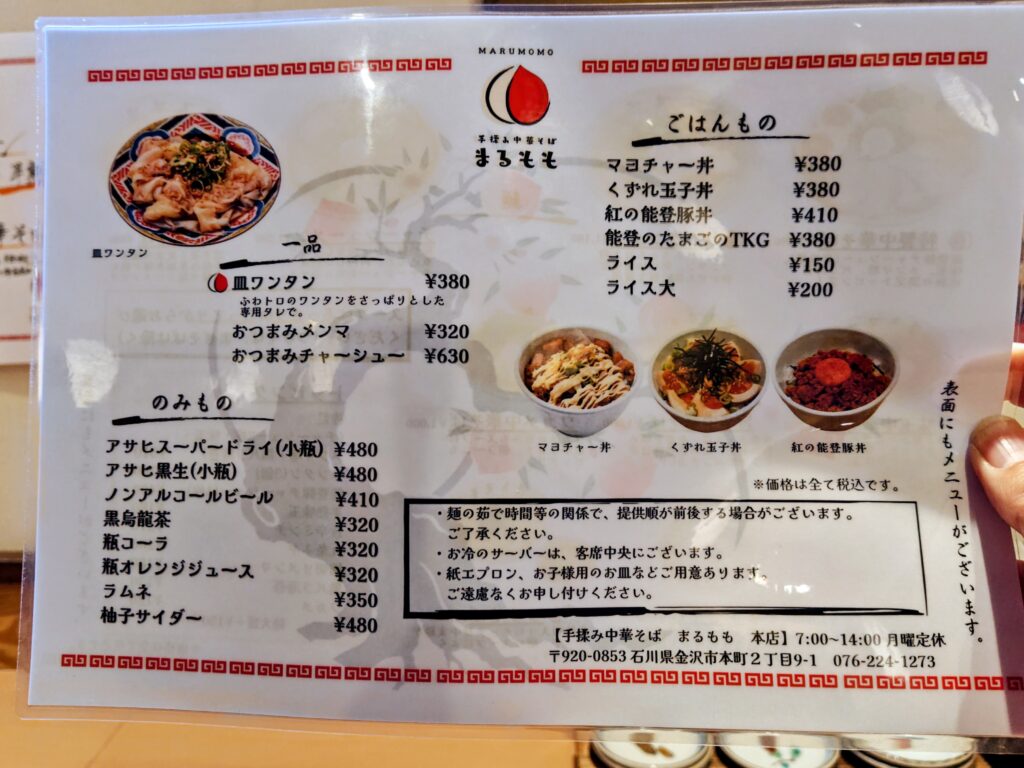 MARUMOMO
手揉み中華そば
まるもも
皿ワンタン
一品
皿ワンタン ¥380
ふわトロのワンタンをさっぱりとした
専用タレで。
おつまみメンマ ¥320
おつまみチャーシュー ¥630
のみもの
アサヒスーパードライ(小瓶) ¥480
アサヒ黒生(小瓶) ¥480
ノンアルコールビール ¥410
黒烏龍茶 ¥320
瓶コーラ ¥320
瓶オレンジジュース ¥320
ラムネ ¥350
柚子サイダー ¥480
ごはんもの
マヨチャー丼 ¥380
くずれ玉子丼 ¥380
紅の能登豚丼 ¥410
能登のたまごのTKG ¥380
ライス ¥150
ライス大 ¥200
マヨチャー丼
くずれ玉子丼
紅の能登豚丼
※価格は全て税込です。
表面にもメニューがございます。
・麺の茹で時間等の関係で、提供順が前後する場合がございます。
ご了承ください。
・お冷のサーバーは、客席中央にございます。
・紙エプロン、お子様用のお皿などご用意あります。
ご遠慮なくお申し付けください。
【手揉み中華そば まるもも 本店】7:00~14:00 月曜定休
〒920-0853 石川県金沢市本町２丁目9-1 076-224-1273